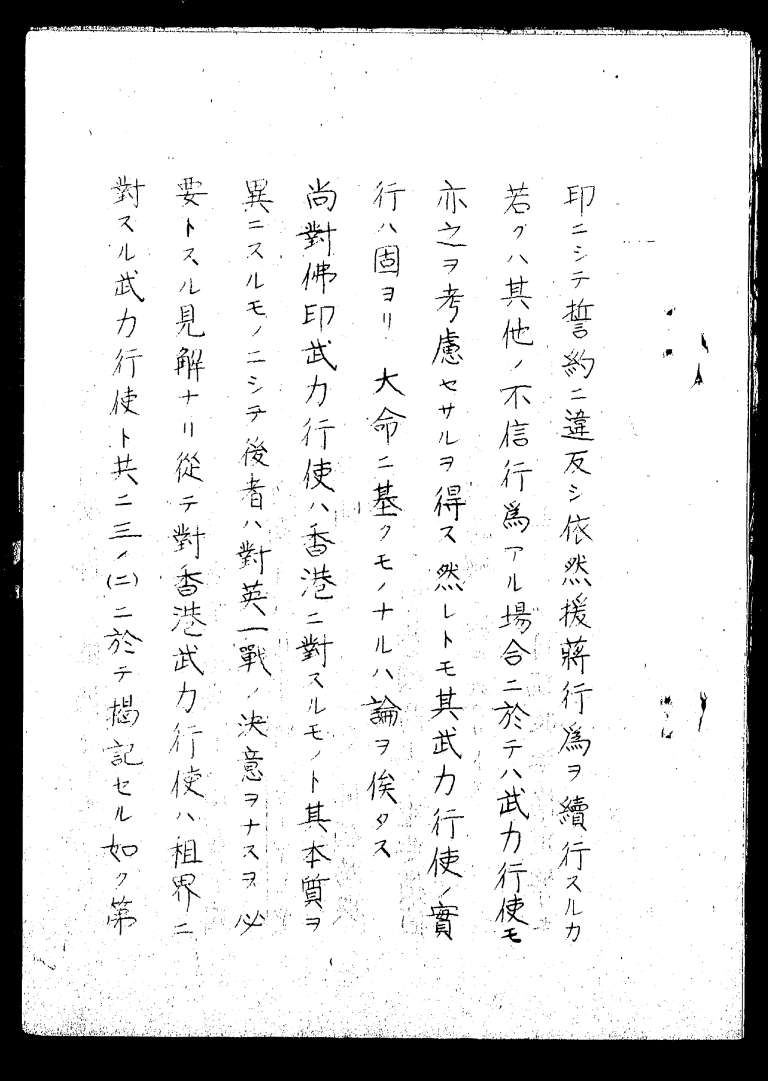 印ニシテ誓約ニ違反シ依然援蔣行爲ヲ續行スルカ
若クハ其他ノ不信行爲アル場合ニ於テハ武力行使モ
亦之ヲ考慮セサルヲ得ス然レトモ其武力行使ノ實
行ハ固ヨリ 大命ニ基クモノナルハ論ヲ俟タス
尚對佛印武力行使ハ香港ニ對スルモノト其本質ヲ
異ニスルモノニシテ後者ハ對英一戰ノ決意ヲナスヲ必
要トスル見解ナリ從テ對香港武力行使ハ租界ニ
對スル武力行使ト共ニ三ノ(二)ニ於テ揭記セル如ク第